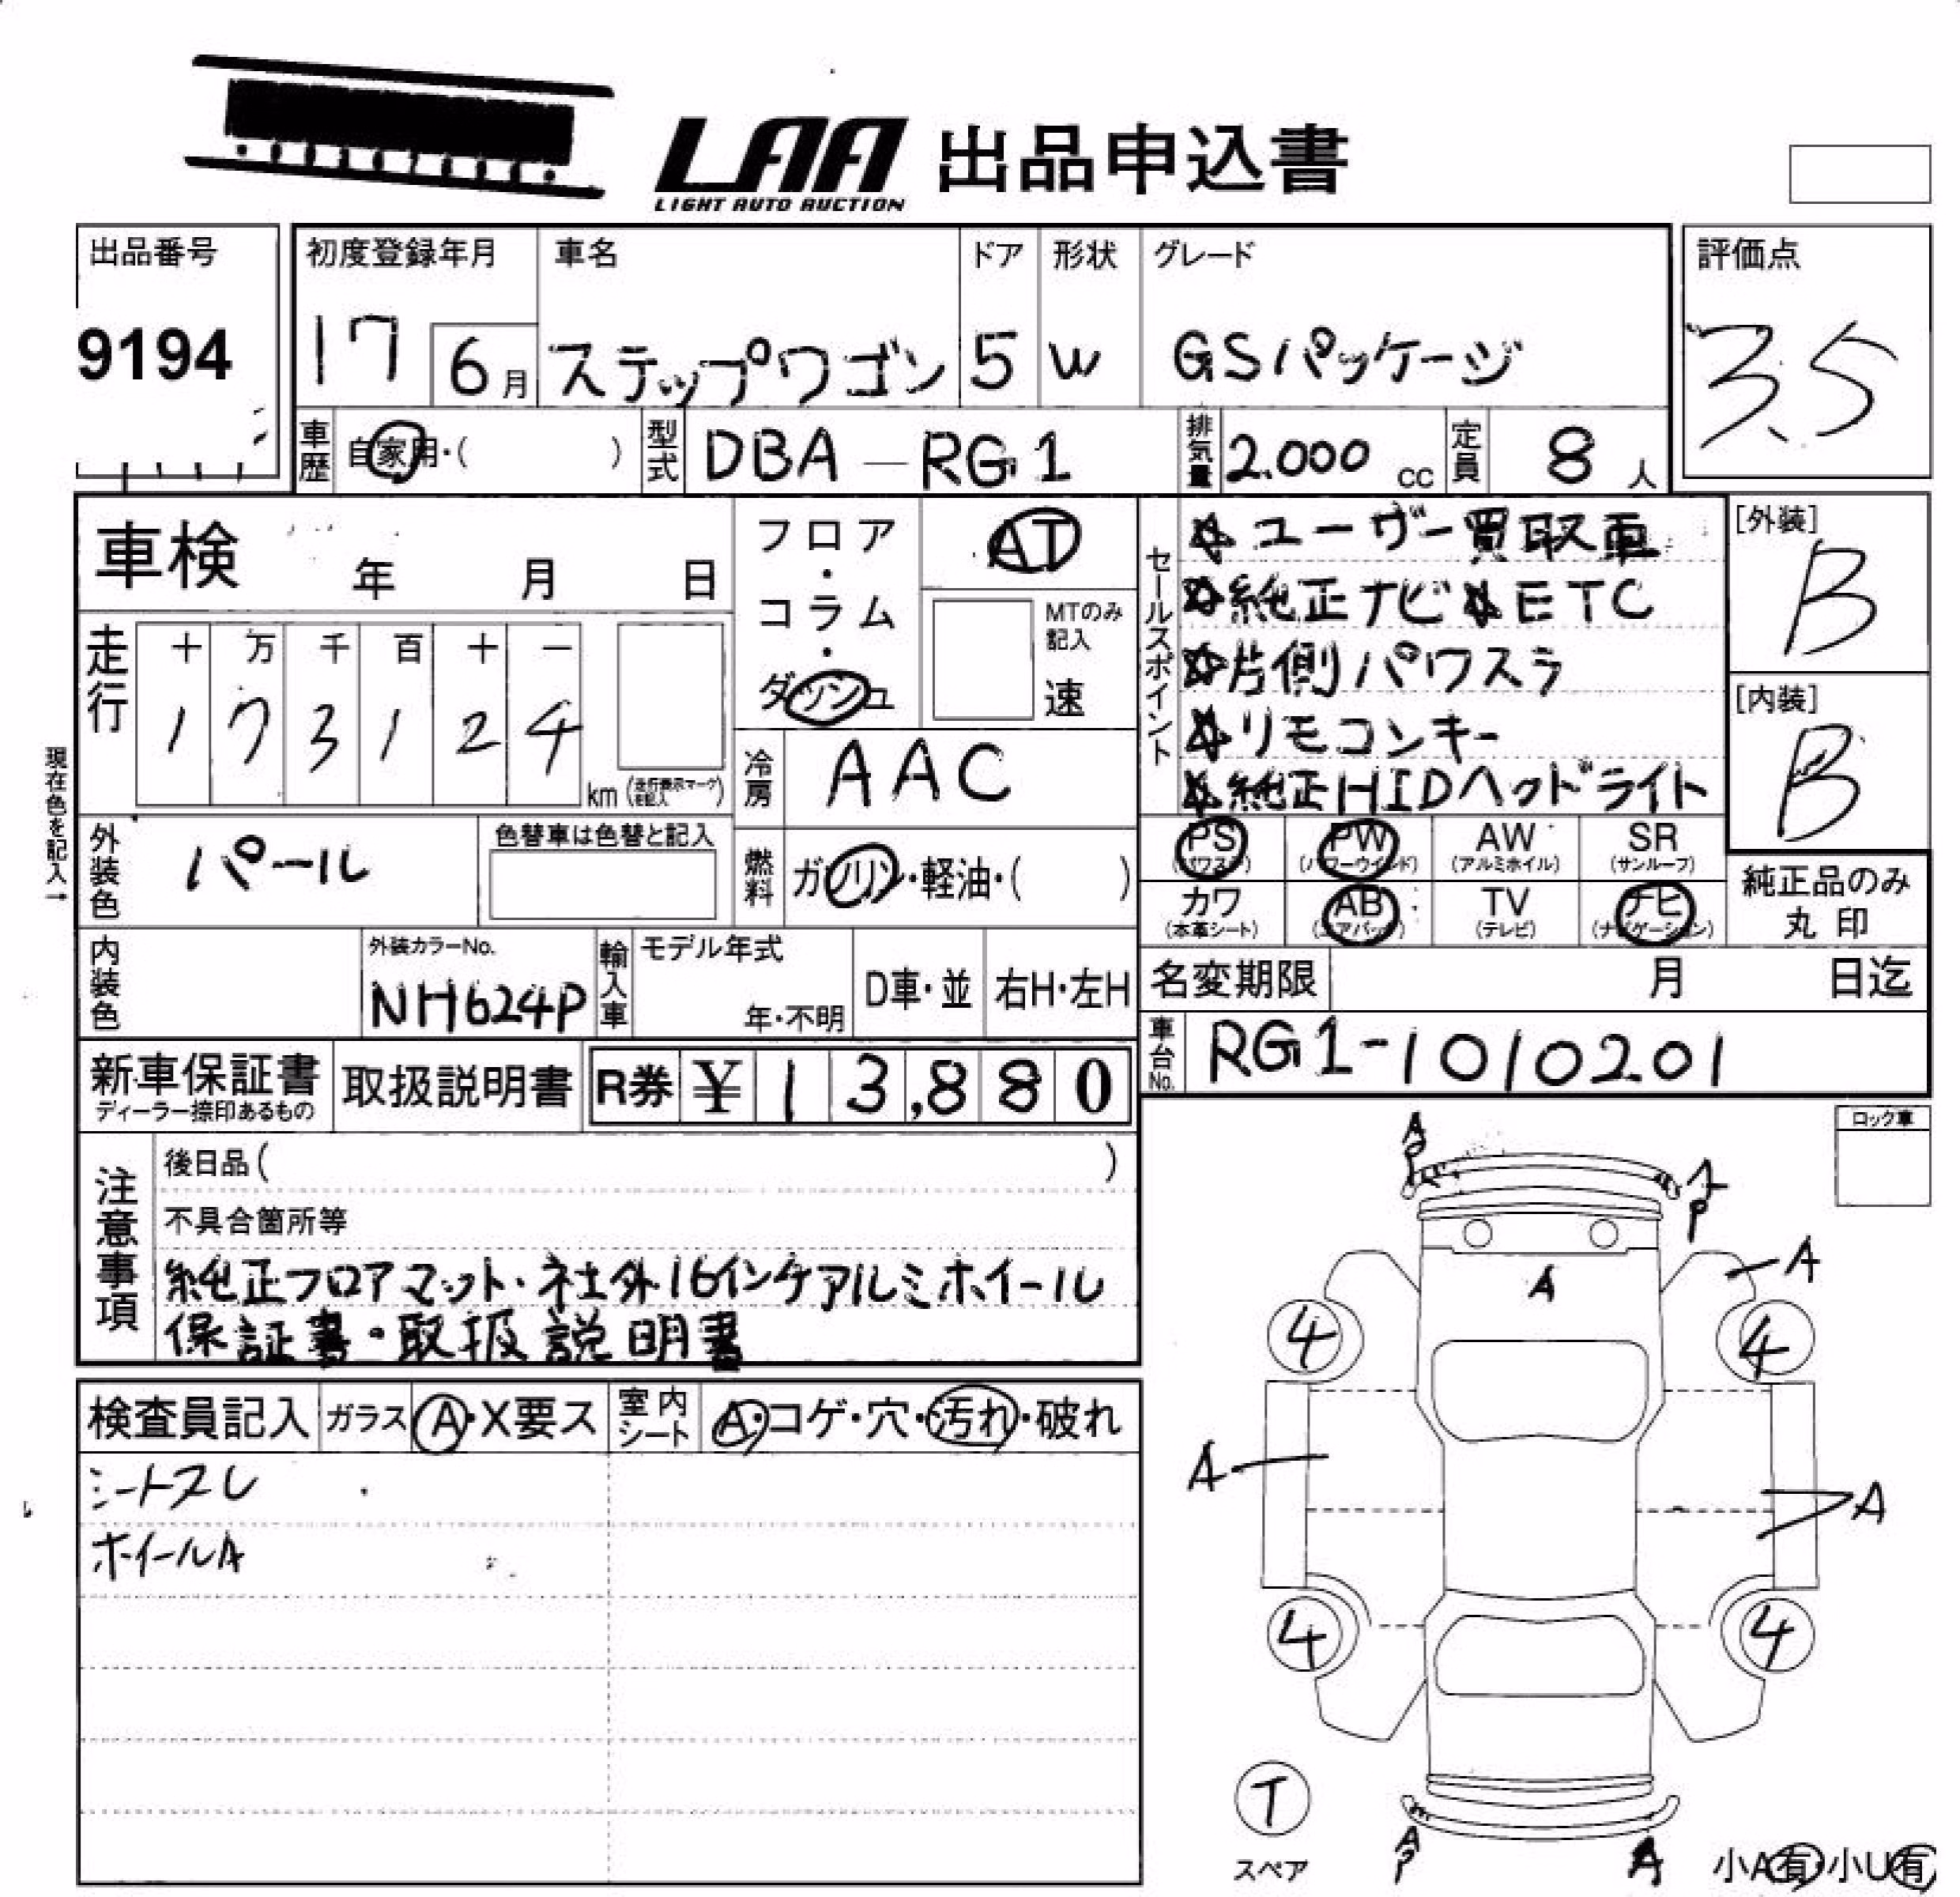 LAA 出品申込書
LIGHT AUTO AUCTION
出品番号
9194
初度登録年月
17
6月
車名
ステップワゴン
ドア
5
形状
W
グレード
GSパッケージ
評価点
3.5
車歴
自家用・( )
型式
DBA-RG1
排気量
2.000 cc
定員
8人
車検 年 月 日
フロア・コラム・ダッシュ
AT
MTのみ記入
速
走行
十 万 千 百 十 一
1 7 3 1 2 4
km (走行表示マークを記入)
冷房
AAC
現在色を記入→
外装色
パール
色替車は色替と記入
燃料
ガソリン・軽油・( )
内装色
外装カラーNo.
NH624P
輸入車
モデル年式
年・不明
D車・並
右H・左H
新車保証書
ディーラー捺印あるもの
取扱説明書
R券 ¥ 13,880
セールスポイント
☆ユーザー買取車
☆純正ナビ☆ETC
☆片側パワスラ
☆リモコンキー
☆純正HIDヘッドライト
[外装]
B
[内装]
B
PS (パワステ)
PW (パワーウインド)
AW (アルミホイル)
SR (サンルーフ)
カワ (本革シート)
AB (エアバック)
TV (テレビ)
ナビ (ナビゲーション)
純正品のみ丸印
名変期限 月 日迄
車台No.
RG1-1010201
注意事項
後日品( )
不具合箇所等
純正フロアマット・社外16インチアルミホイール
保証書・取扱説明書
検査員記入
ガラス
A・X要ス
室内シート
A・コゲ・穴・汚れ・破れ
シートスレ
ホイールA
ロック車
A
P
A
P
A
A
4
4
A
A
4
4
T
スペア
A
P
A
小A有・小U有